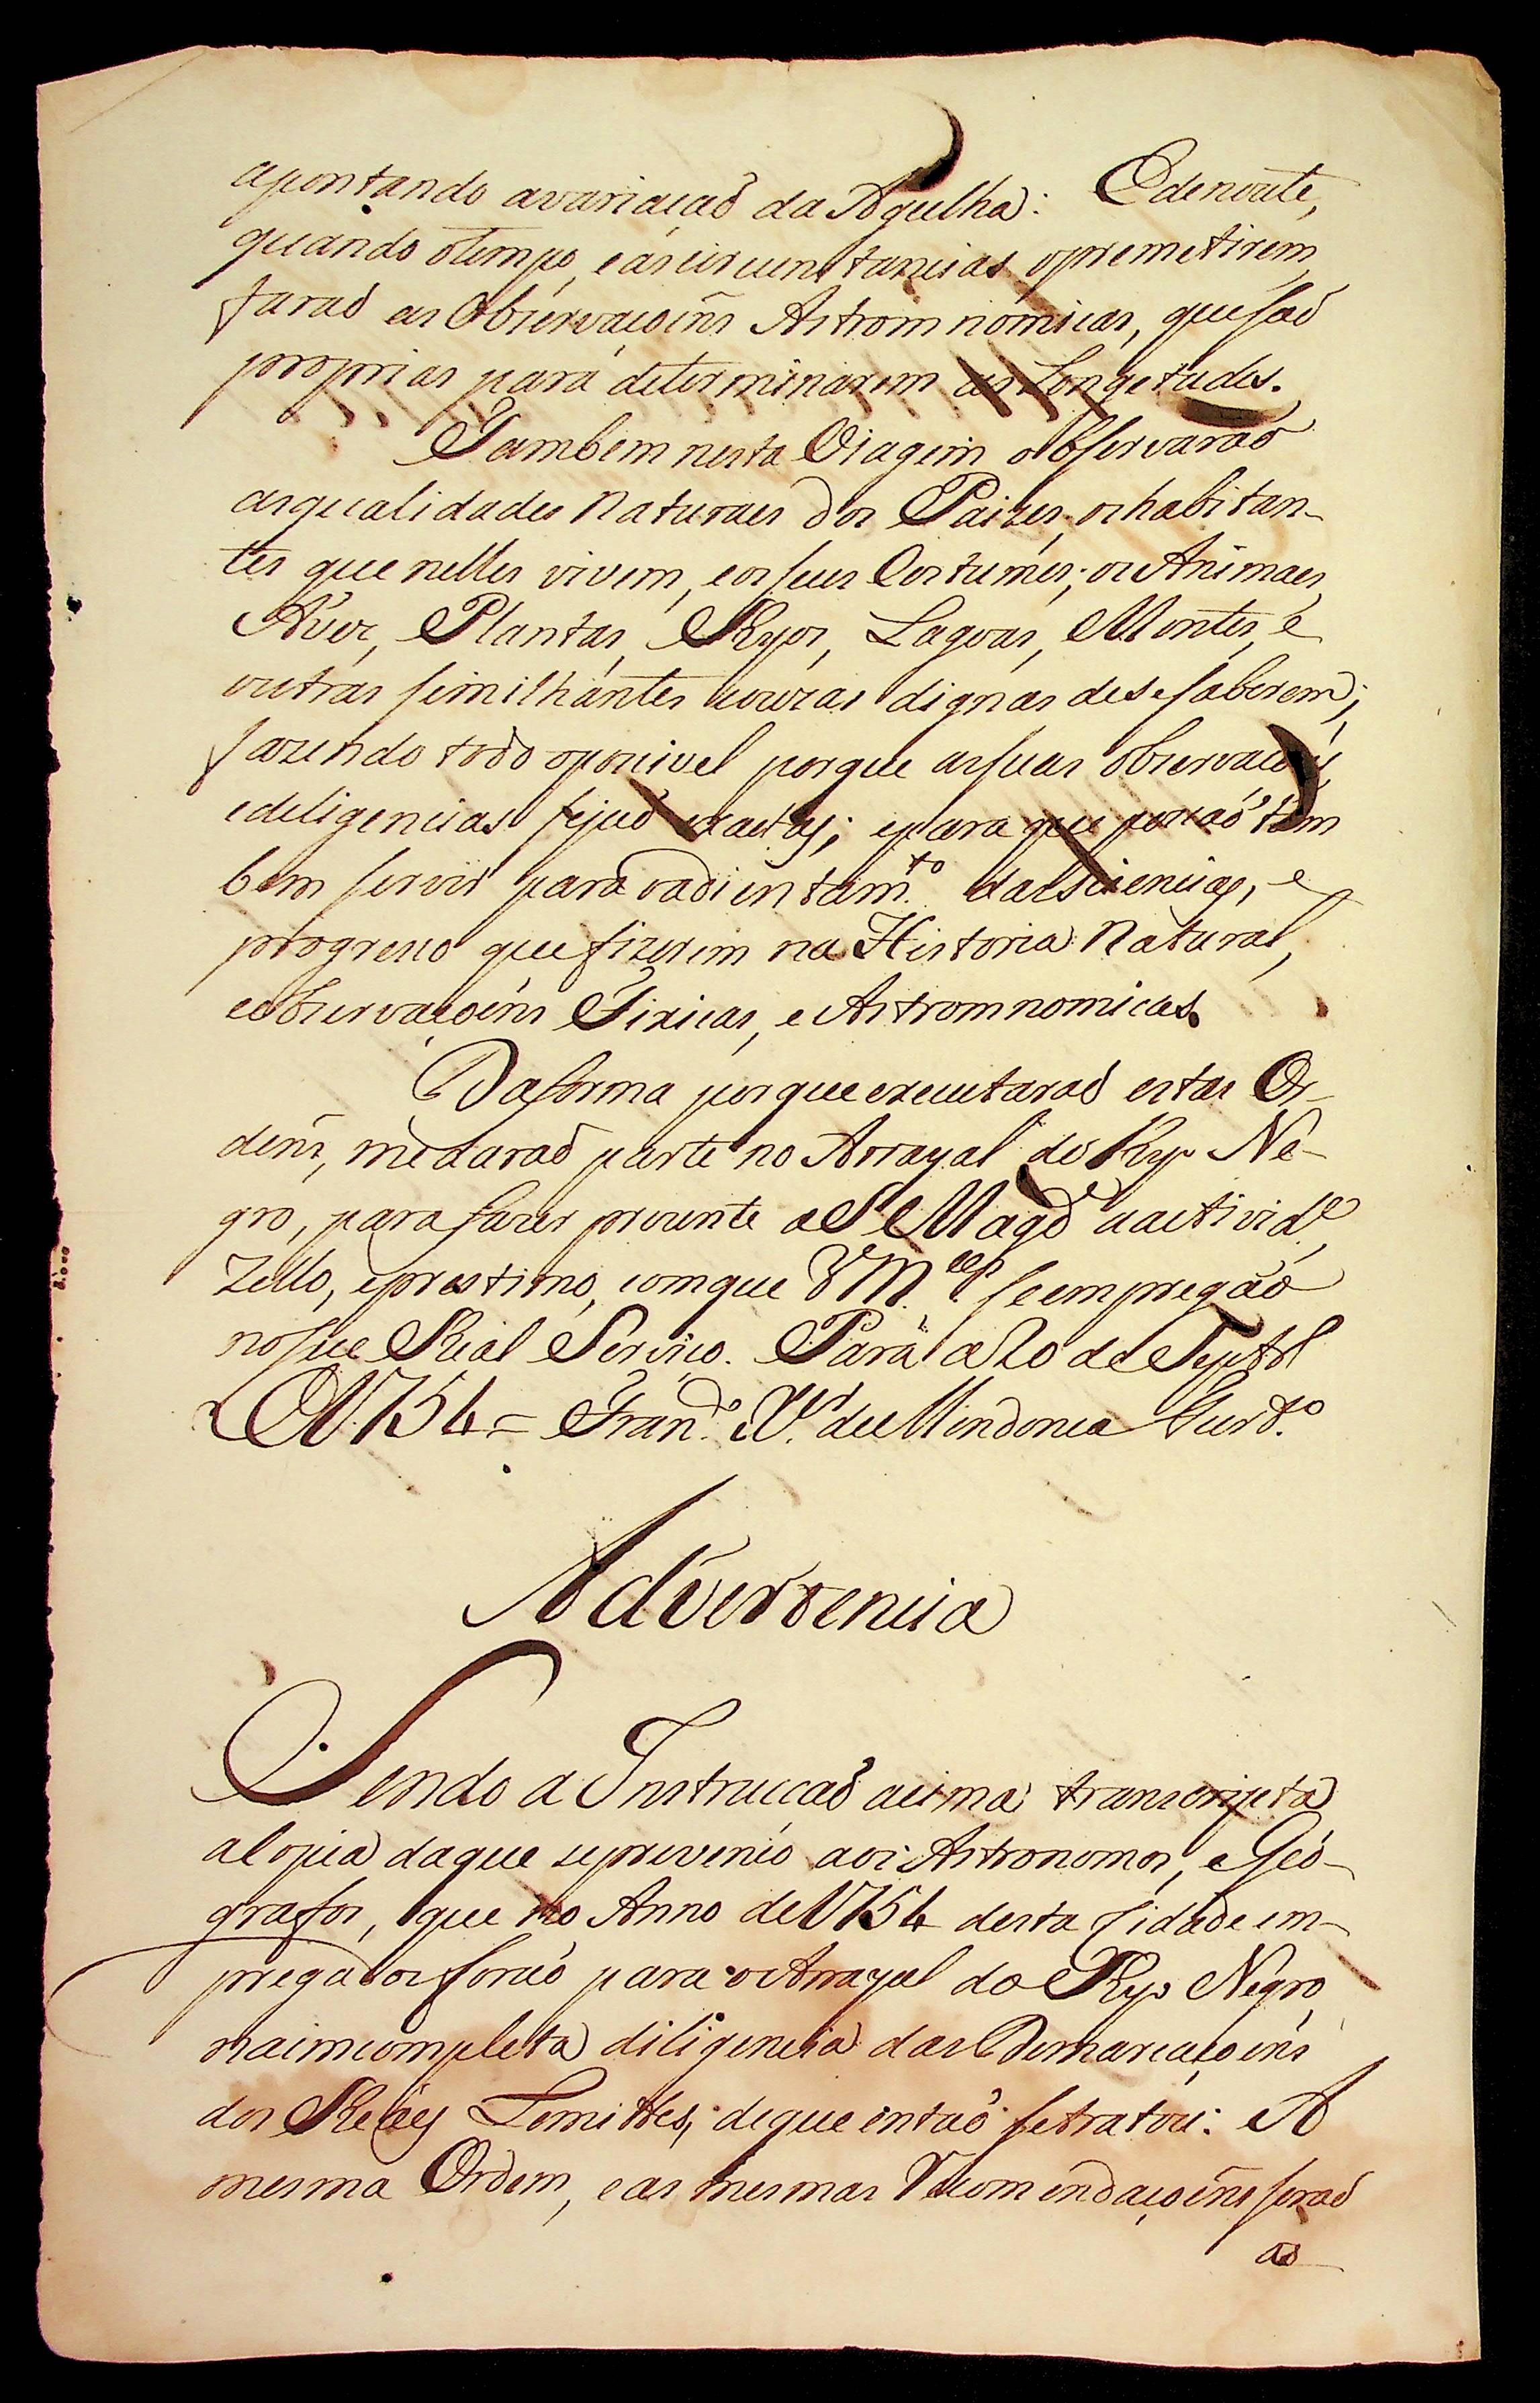 apontando avariaçaõ da Agulha: Edenoute,
quando otempo, eascircunstancias opremetirem,
faraõ as Observaçoẽns Astromnomicas, quesaõ
proprias para determinarem as Longetudes.
Tambem nesta Viagem observaraõ
asqualidades Naturaes dos Paizes, oshabitan-
tes que nelles vivem, eosseus Costumes; os Animaes,
Avez, Plantas, Ryos, Lagoas, Montes, e
outras similhantes couzas dignas desesaberem;
fazendo todo oposivel porque assuas observaçoẽs,
edeligencias sejaõ exactas; epara que possaõ tam
bem servir para oadientam.to dasSciencias, e
progresso que fizerem na Historia Natural,
eobservaçoéns Fizicas, e Astromnomicas.
Daforma porque executaraõ estas Or-
dens, medaraõ parte no Arrayal do Ryo Ne-
gro, para fazer prezente aS Mag.de aactivid.e,
Zello, eprestimo, comque VM.ces seempregaõ
noseu Real Serviço. Pará a 20 de Septbr
1754 = Fran.co X.er de Mendonca Furt.do
Advertencia
Sendo a Instrucçaõ acima transcripta
acopia daque seprevenio aos Astronomos, e Geó-
grafos, que no Anno de 1754 desta Cidade em-
pregados foraõ para o Arrayal do Ryo Negro,
naimcompleta diligencia das Demarcaçoéns
dos Reáes Lemittes, deque entaõ setratou: A
mesma Ordem, eas mesmas Recomendaçoẽns seraõ
as